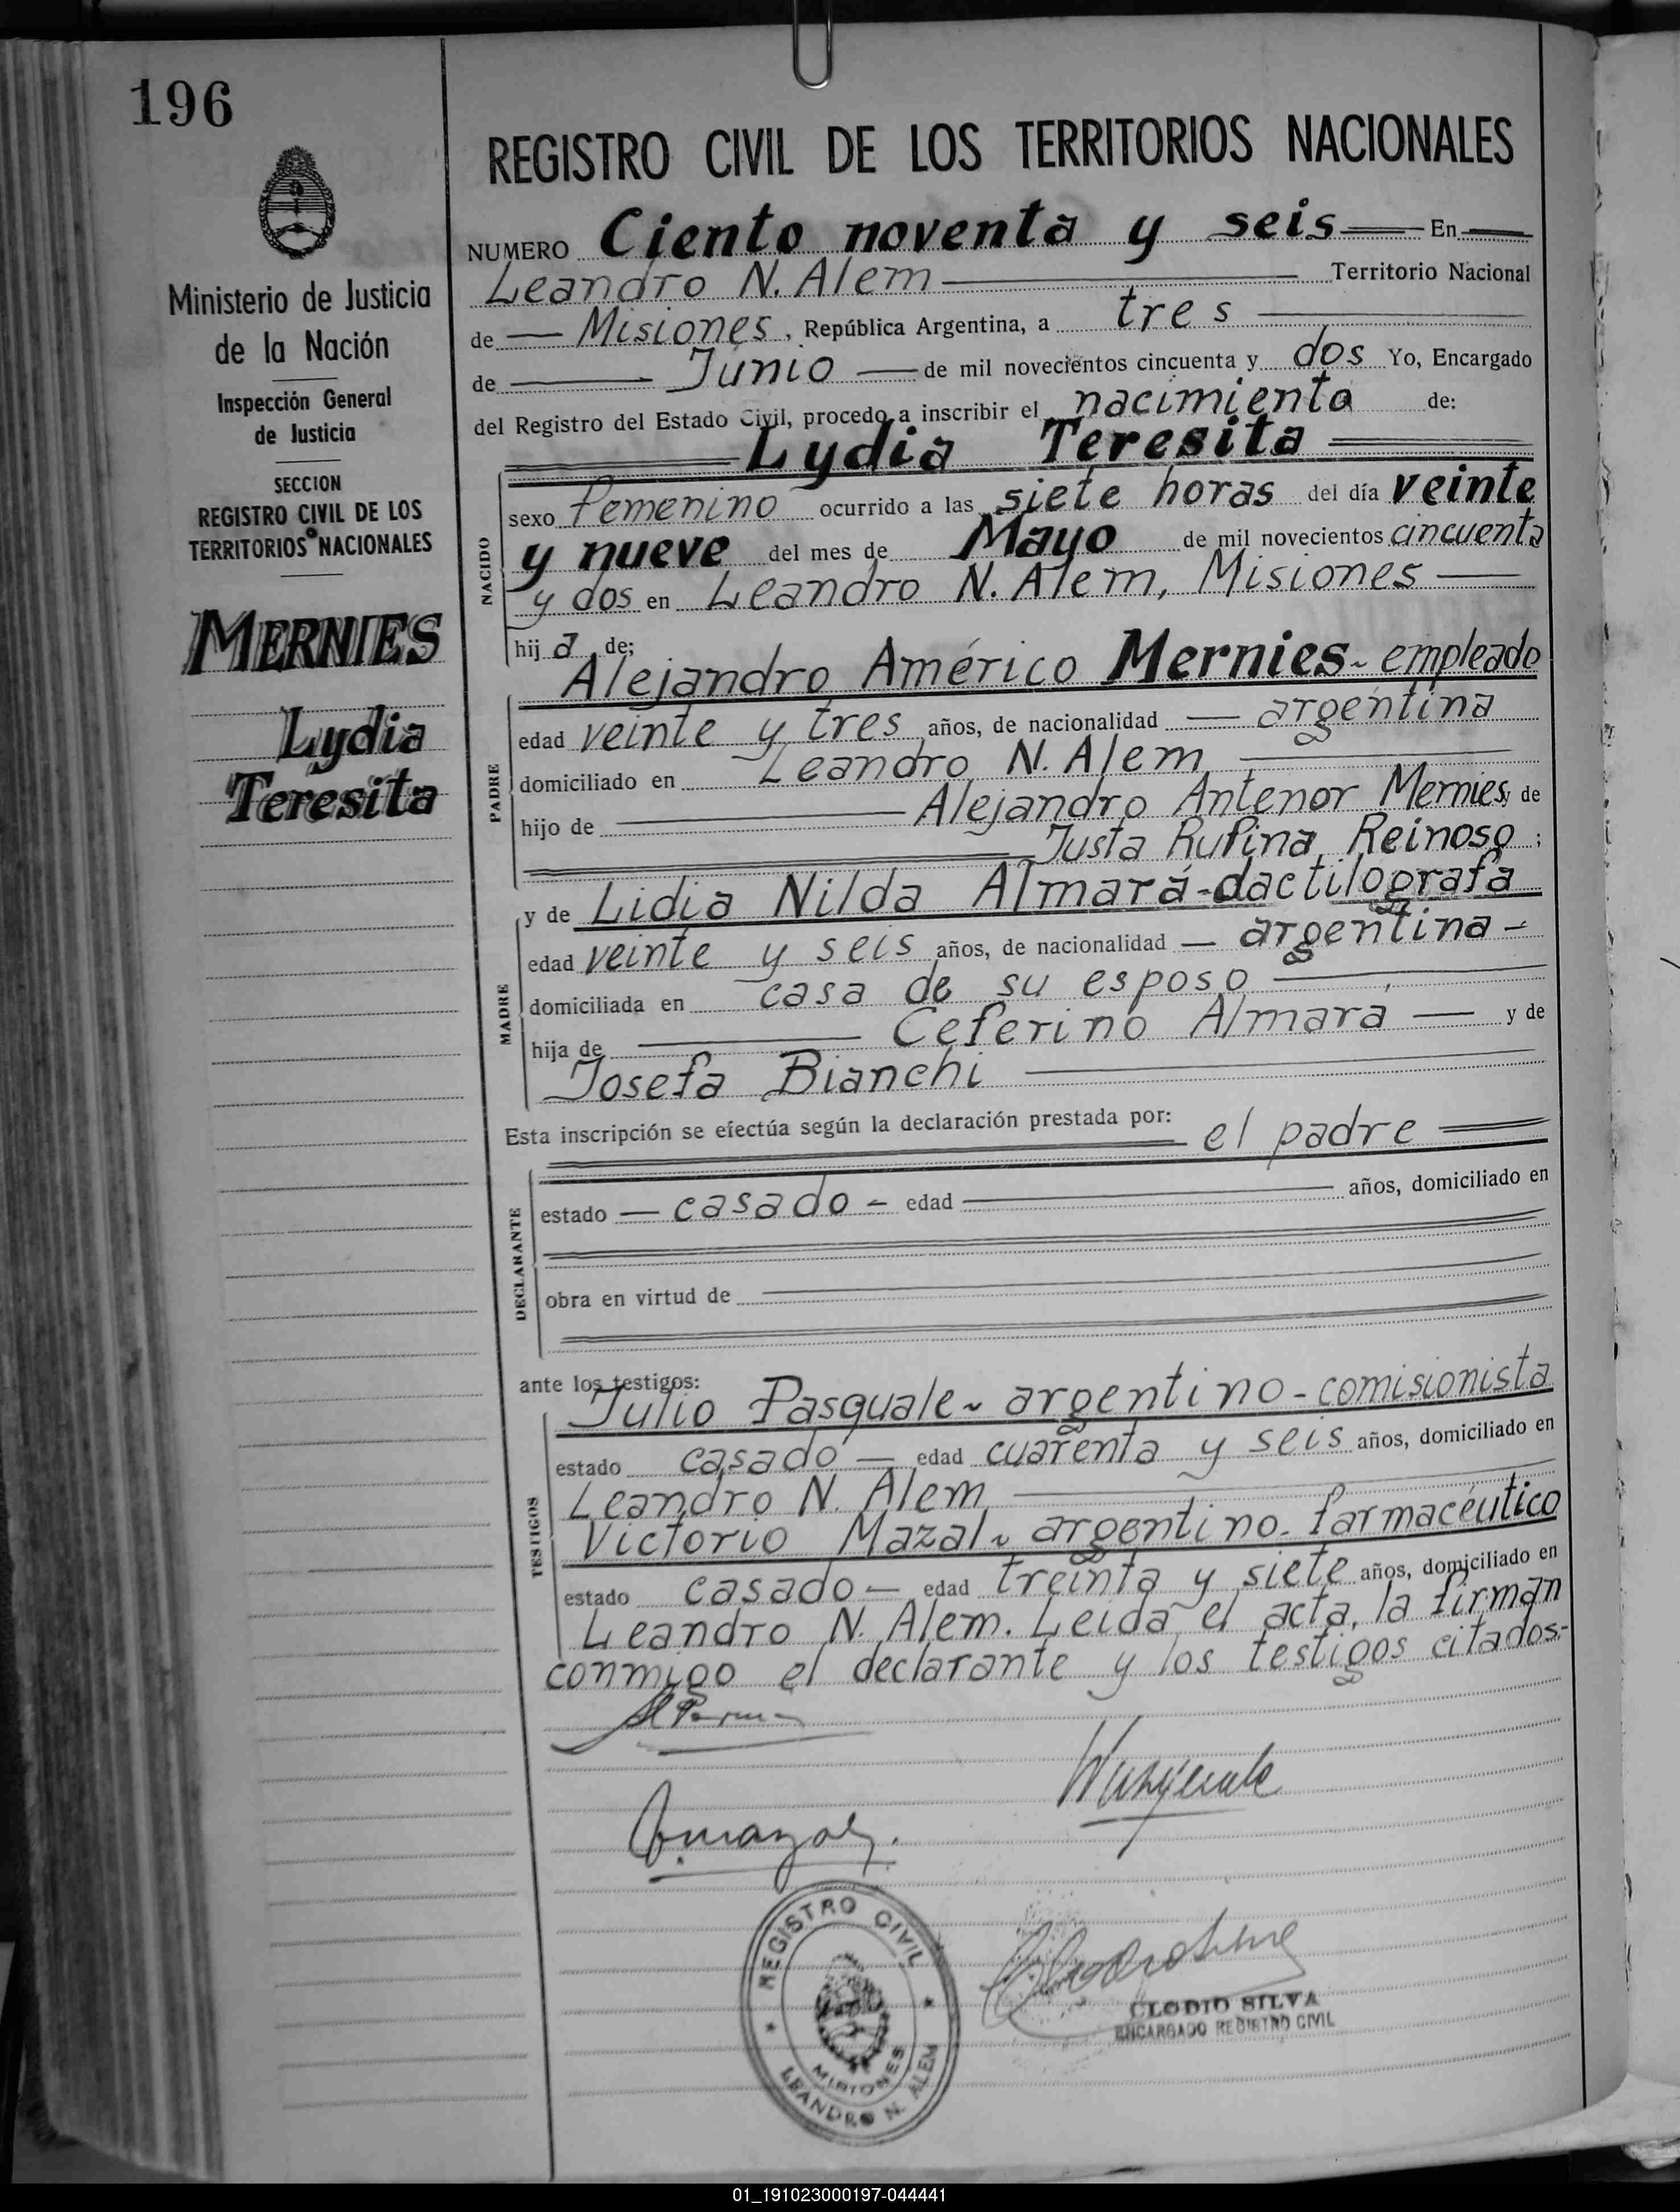 196
Ministerio de Justicia
de la Nación
Inspección General
de Justicia
SECCION
REGISTRO CIVIL DE LOS
TERRITORIOS NACIONALES
MERNIES
Lydia
Teresita
REGISTRO CIVIL DE LOS TERRITORIOS NACIONALES
NUMERO Ciento noventa y seis En
Leandro N. Alem Territorio Nacional
de Misiones, República Argentina, a tres
de Junio de mil novecientos cincuenta y dos Yo, Encargado
del Registro del Estado Civil, procedo a inscribir el nacimiento de:
Lydia Teresita
NACIDO
sexo femenino ocurrido a las siete horas del día veinte
y nueve del mes de Mayo de mil novecientos cincuenta
y dos en Leandro N. Alem, Misiones
hija de;
Alejandro Américo Mernies - empleado
PADRE
edad veinte y tres años, de nacionalidad argentina
domiciliado en Leandro N. Alem
hijo de Alejandro Antenor Mernies, de
Justa Rufina Reinoso ;
y de Lidia Nilda Almará - dactilografa
MADRE
edad veinte y seis años, de nacionalidad argentina -
domiciliada en casa de su esposo
hija de Ceferino Almará y de
Josefa Bianchi
Esta inscripción se efectúa según la declaración prestada por:
el padre
DECLARANTE
estado casado - edad años, domiciliado en
obra en virtud de
ante los testigos:
TESTIGOS
Julio Pasquale - argentino - comisionista
estado casado edad cuarenta y seis años, domiciliado en
Leandro N. Alem
Victorio Mazal - argentino - farmacéutico
estado casado - edad treinta y siete años, domiciliado en
Leandro N. Alem. Leida el acta, la firman
conmigo el declarante y los testigos citados.-
REGISTRO CIVIL
MISIONES
LEANDRO N. ALEM
CLODIO SILVA
ENCARGADO REGISTRO CIVIL
01_191023000197-044441